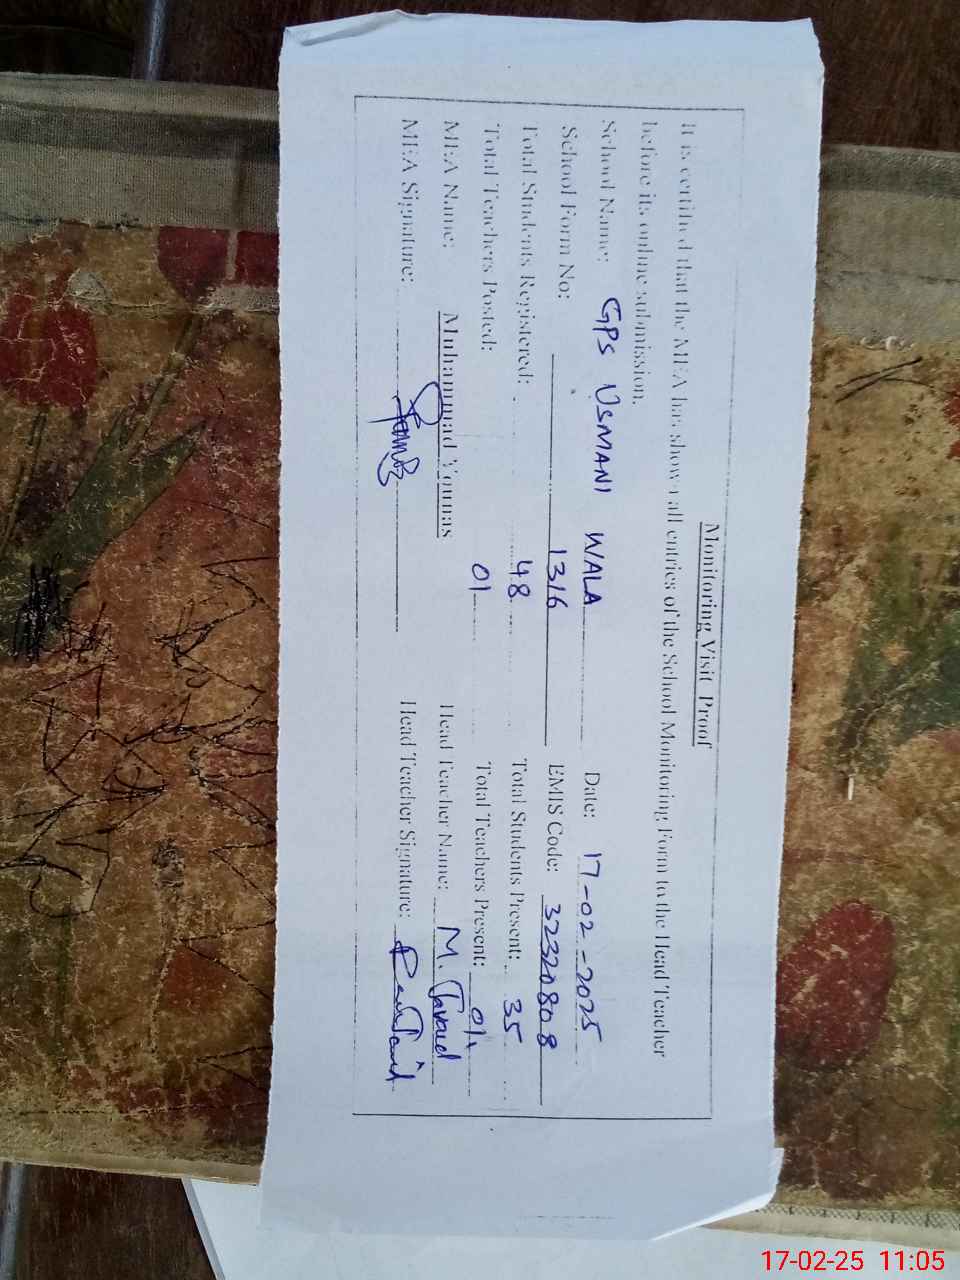 Monitoring Visit Proof
It is certified that the MEA has shown all entries of the School Monitoring Form to the Head Teacher
before its online submission.
School Name: GPS USMANI WALA Date: 17-02-2025
School Form No: 1316 EMIS Code: 32320808
Total Students Registered: 48 Total Students Present: 35
Total Teachers Posted: 01 Total Teachers Present: 01
MEA Name: Muhammad Younas Head Teacher Name: M. Javaid
MEA Signature: Head Teacher Signature:
17-02-25 11:05